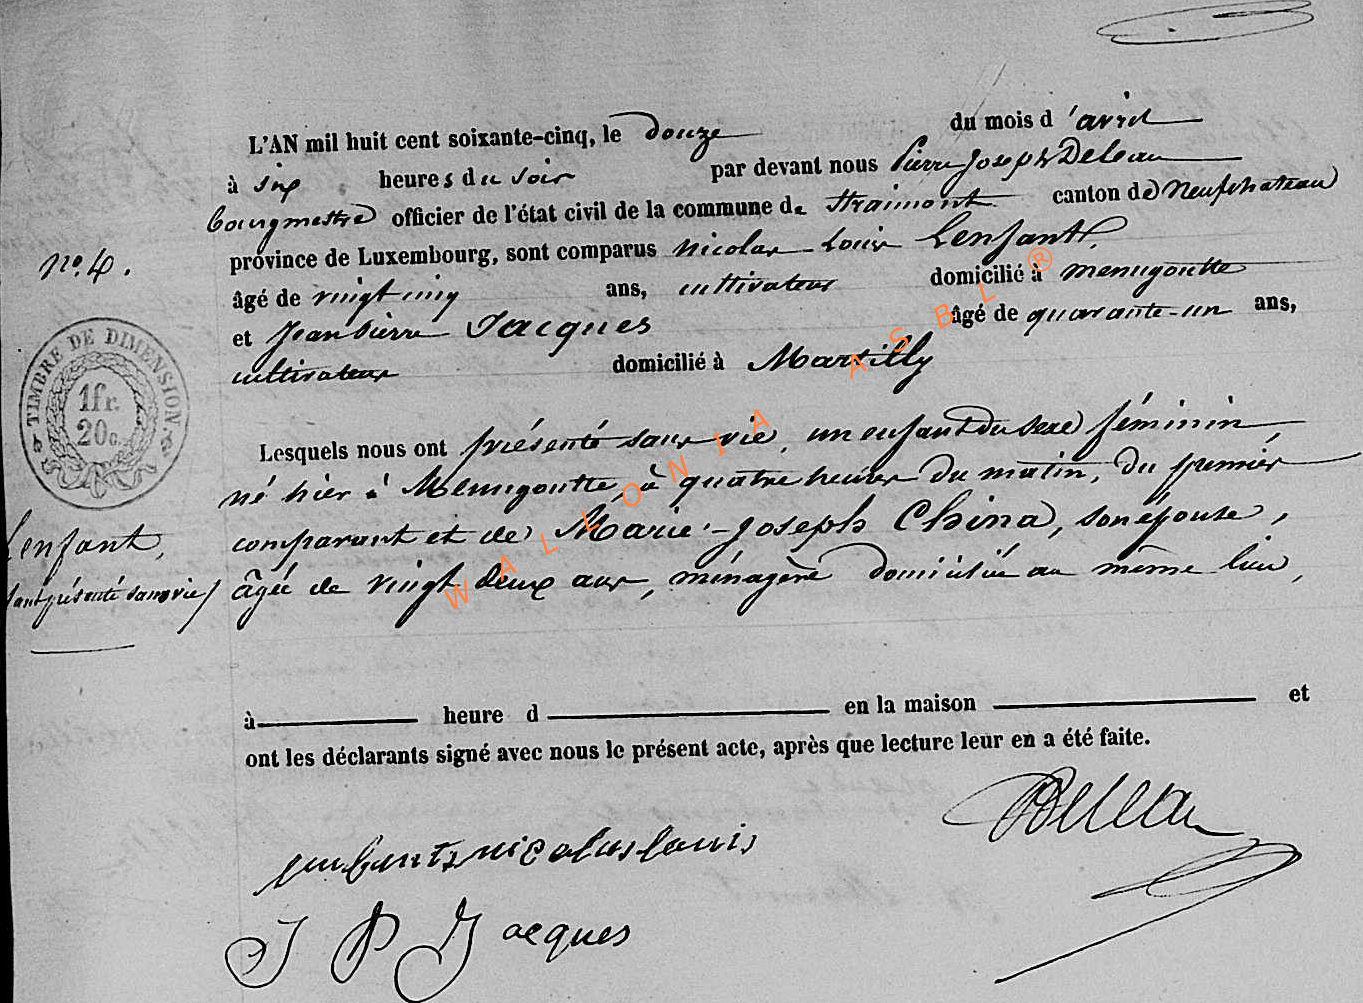 L'AN mil huit cent soixante-cinq, le douze du mois d'avril
à six heures du soir par devant nous Pierre Joseph Deleau
bourgmestre officier de l'état civil de la commune de Straimont canton de Neufchateau
no. 4.
province de Luxembourg, sont comparus nicolas Louis Lenfant,
âgé de vingt cinq ans, cultivateur domicilié à menugoutte
et Jean Pierre Jacques âgé de quarante-un ans,
cultivateur domicilié à Martilly
TIMBRE DE DIMENSION.
1fr.
20c.
Lesquels nous ont présenté sans vie, un enfant du sexe féminin,
né hier à Menugoutte, à quatre heures du matin, du premier
Lenfant,
comparant et de Marie-Joseph China, son épouse,
présenté sans vie)
âgée de vingt deux ans, ménagère domiciliée au même lieu,
à heure d en la maison et
ont les déclarants signé avec nous le présent acte, après que lecture leur en a été faite.
Deleau
nicolas louis
J P Jacques
WALLONIA ASBL ®